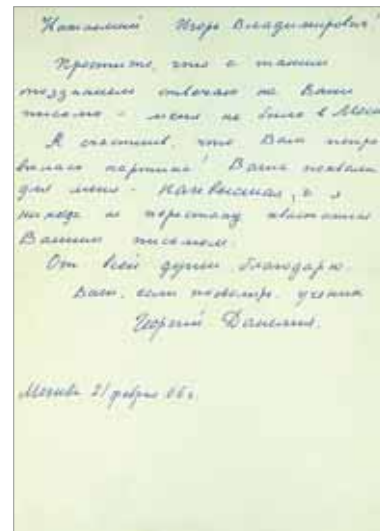 Игорь Владимирович!
Простите, что с таким
опозданием отвечаю на Ваше
письмо – меня не было в Моск
Я счастлив, что Вам понра
вилась картина! Ваша похвала
для меня – наивысшая, и я
никогда не перестану хвастаться
Вашим письмом
От всей души благодарю.
Ваш, если позволите, ученик
Георгий Данелия.
Москва 21 февраля